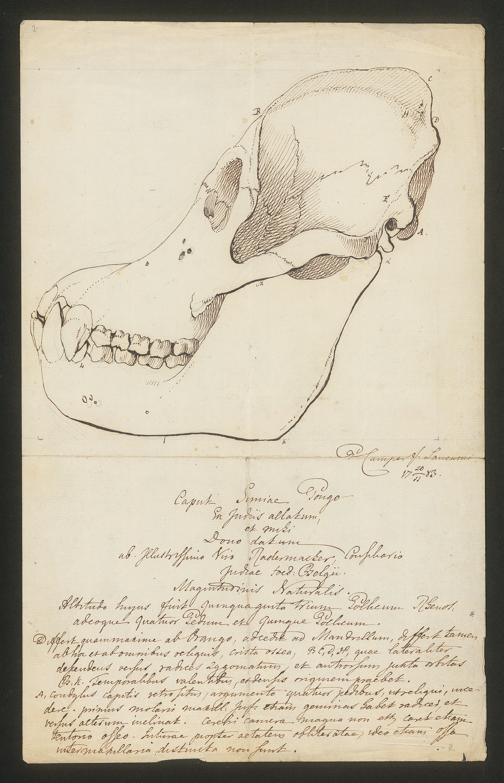 B
C
D
H
E
A
K
P. Camper f. Lauenum
17 20/11 83.
Caput Simiae Pongo
Ex Indiis allatum,
et mihi
Dono datum
ab Illustrissimo Viro Radermacher, Consiliario
Indiae foed: Belgii.
Magnitudinis Naturalis.
Altitudo hujus fuit quinquaginta trium Pollicum
adeoque quatuor Pedum et quinque Pollicum.
Differt quammaxime ab Orango, accedit ad Mandrillum, differt tamen
ab hoc et ab omnibus reliquis, crista ossea, B, C, D, H, quae lateraliter
dependens versus radices zygomatum, et antrorsum juxta orbitas
B. k. temporalibus valentibus, et densis originem praebet.
A, condylus capitis retrositus, argumento quatuor pedibus, ut reliqui, ince-
dere. primus molaris maxill. etiam geminas habet radices et
versus alterum inclinat. cerebri camera magna non est, caret etiam
tentorio osseo. Suturae propter aetatem obliteratae, ideo etiam ossa
intermaxillaria distincta non sunt.